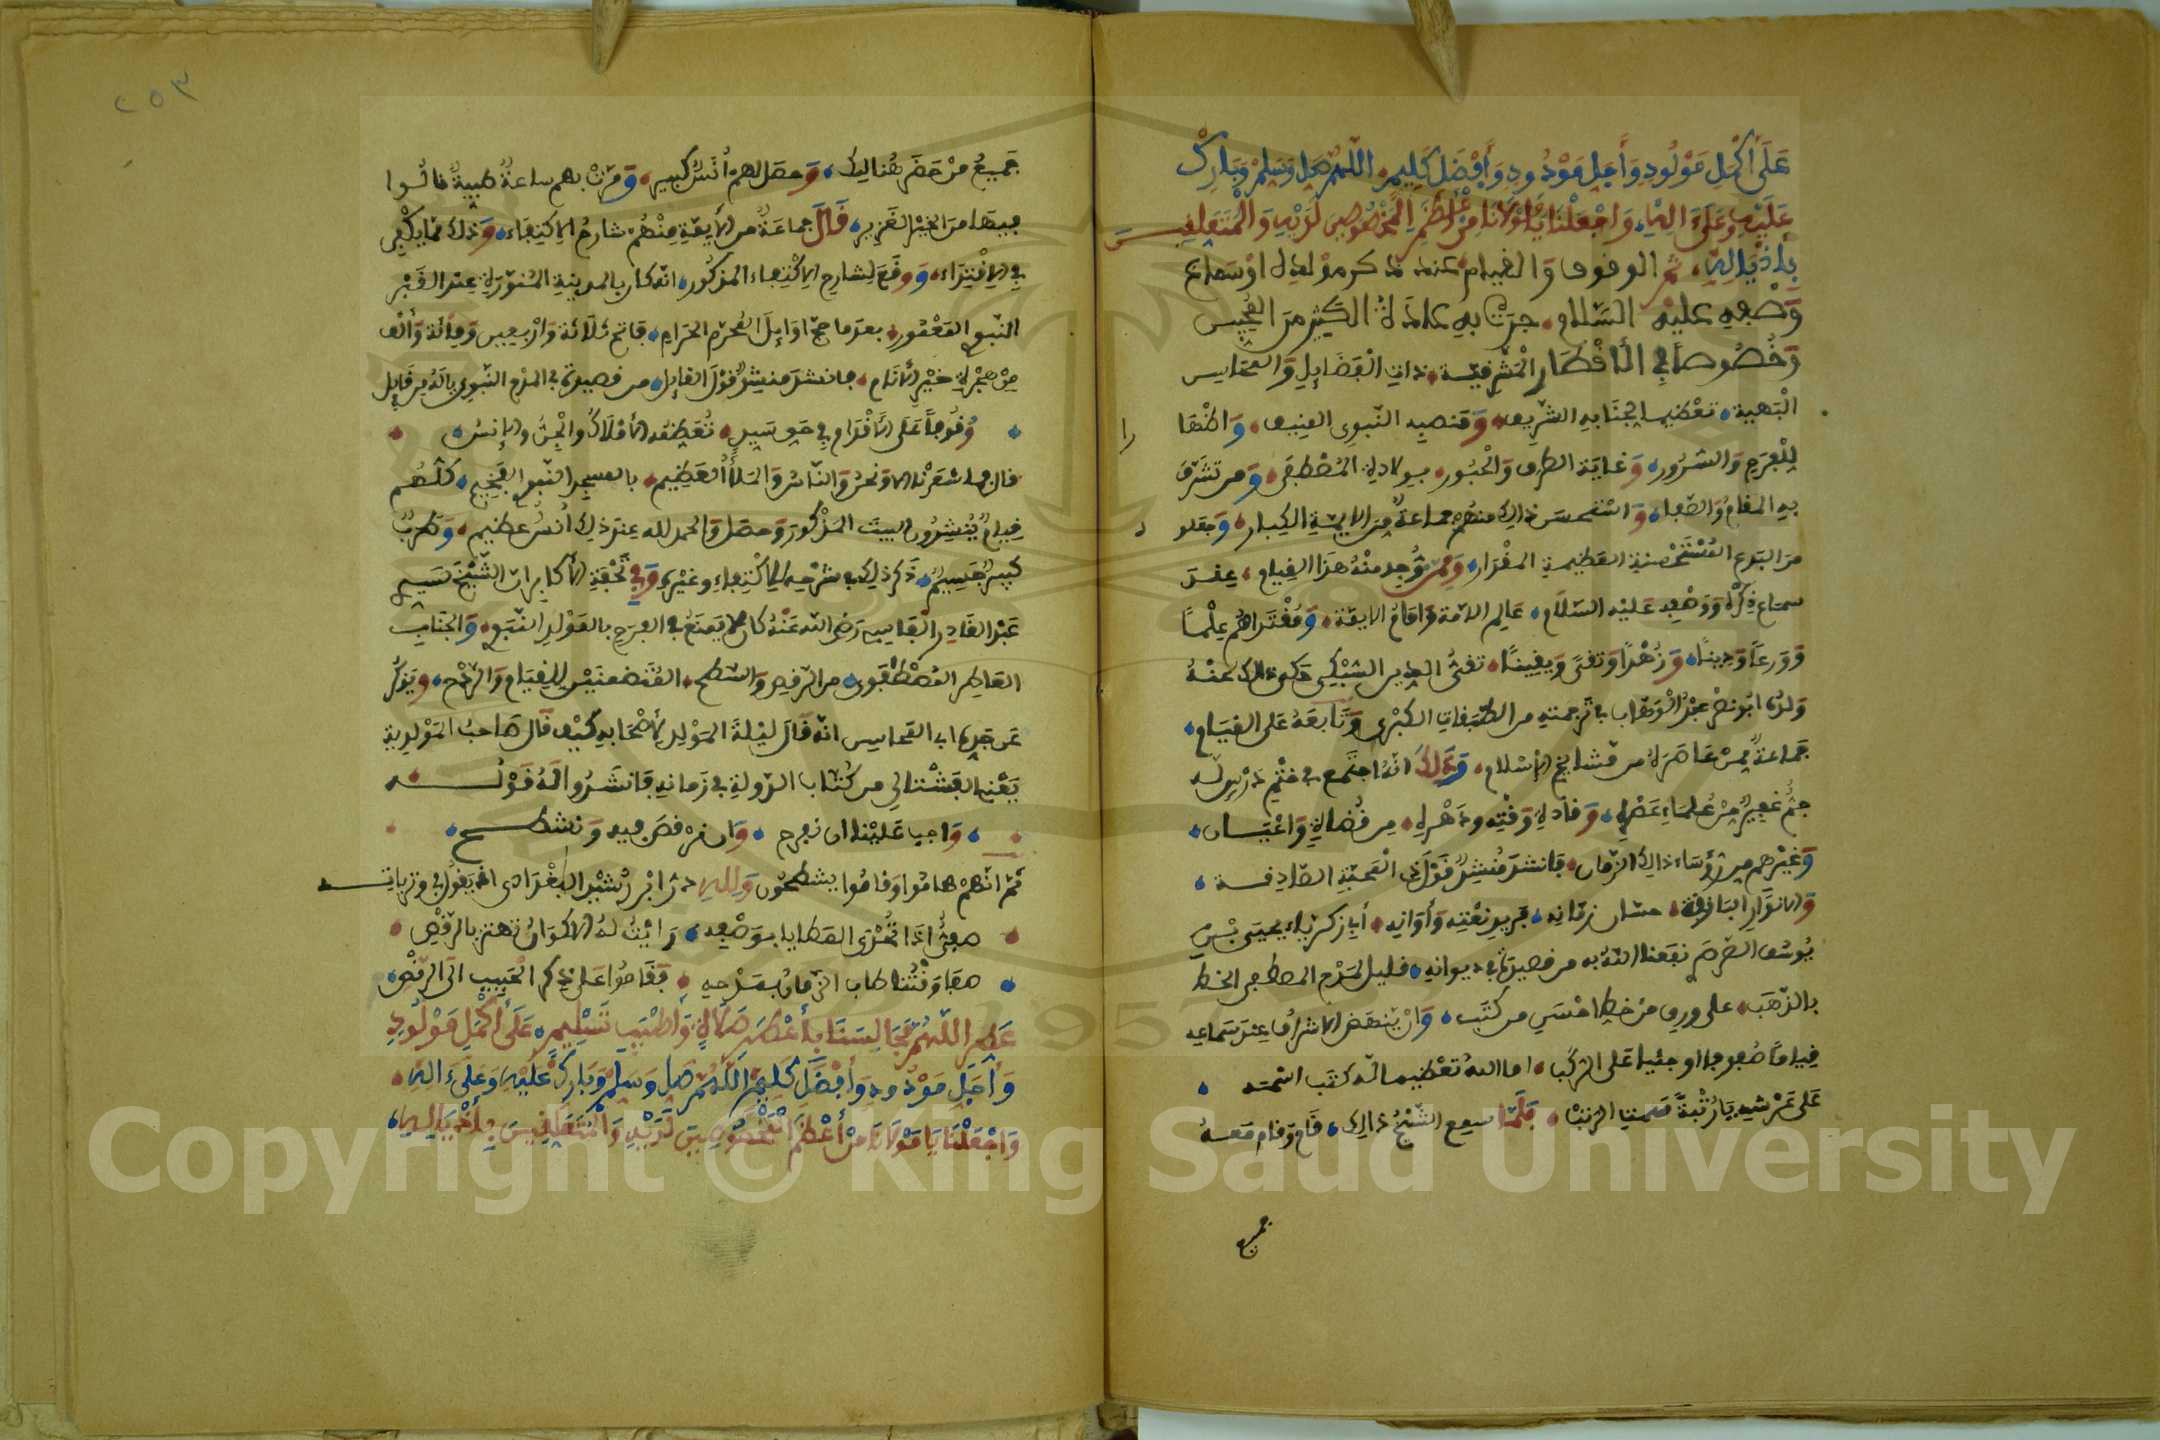 عَلَى أَكْمَلِ مَوْلُودٍ وَأَجَلِّ مَوْدُودٍ وَأَفْضَلِ كَلِيمٍ اللَّهُمَّ صَلِّ وَسَلِّمْ وَبَارِكْ
عَلَيْهِ وَعَلَى آلِهِ وَاجْعَلْنَا يَا مَوْلَانَا مِنْ أَعْظَمِ الْمَخْصُوصِينَ لَدَيْهِ وَالْمُتَعَلِّقِينَ
بِأَذْيَالِهِ ثم الوقوف والقيام عند ذكر مولده او سماع
وَضْعِهِ عليه السلام جرت به عادة الكثير من المحبين
وَخُصُوصاً فِي الأَقْطَارِ الْمَشْرِقِيَّة ذات الْفَضَايِلِ وَالمحاسن
الْبَهية تعظيما لجنابه الشريف ومنصبه النّبوي المنيف وَاظْهَارا
لِلْفرحِ وَالسُّرور وَغاية الطرب وَالْحُبور بولادة المُصْطفى ومن تشرف
به المقام والصفا وَاستحسن ذالك منهم جماعة من الايمة الكبار وَجعلوه
من البدع المُسْتَحْسَنة العظيمة المقدار وَممن وُجد منْهُ هذا القيام عند
سماع ذكره وَوضعه عَليه السلام عَالِم الامة وَامَام الايمة وَمُقْتَداهُم عِلْماً
وَوَرعاً وَدِيناً وَزُهْداً وَتقىً وَيقيناً تقي الدين السُّبْكي حكى ذلك عنْهُ
ولدُه ابُو نصْر عبْد الْوهّاب في ترجمته من الطبقات الكبْرى وَتَابَعَهُ عَلى القيام
جَماعة ممن عاصره من مشايخ الإسْلام وَذَلِكَ انّهُ اجتَمع في ختْم دَرْس له
جَمٌّ غَفِير مِنْ عُلماء عَصْره وَقادة وَقْتِه وَدَهْره مِن قُضاة وَاعْيان
وَغيرهم من رُؤساء ذالك الزّمان فانشد مُنشدٌ قول ذي الْمحبّة الصادقة
والانوار البارقة حسان زمانه فَريدِ نعْتِه وَأوانه أبي زكرياء يحيى بْن
يُوسُف الصّرصري نفعنا الله به من قصيدته في ديوانه قليل لمدْح المصطفى الخط
بالذهب على ورق من خط احسن من كتب وَانْ ينهض الاشراف عند سَماعه
قياماً صُفوفا او جثيا على الركب اما الله تعْظيما له كتب اسمه
عَلى عَرْشه يا رُتْبَةً سمت الرتب فَلَمَّا سمع الشّيْخ ذالك قَام وقام معه
جميع
٢٥٣
جَميعُ مَنْ حَضَر هُنالك وَحصل لهم أُنْسٌ كبير وَمَرّتْ بهم ساعة طيبة نالُوا
فيها من الخيْر الغزير قَالَ جماعَةٌ من الأيمة مِنْهم شارح الإكتفاء وَذلك مما يكفي
في الاِقْتِداء وَوقَعَ لِشارح الاكْتفاء المذكُور انه كان بالمدينة المُنورة عِنْد القبْر
النّبوي المعْمُور بعد ما حج اوَايل المُحرّم الحَرام فاتح ثلاثة وَارْبعين وَمائة وَألف
من هجرة خيْرِ الأنام فانشد منشدٌ قول القايل من قصيدة في المدح النّبوي يا له من قَايل
وُقُوفاً عَلى الأقْدام في حق سيد تُعظّمُه الأمْلاك والْجِنُّ والإنسُ
قال فما شعَرْنا الا وَنحن وَالنّاس وَالملأُ العظيم بالمسجد النّبوي الفخيم كلّهُم
قِيامٌ يُنْشِدُون البيت المَذْكور وَحصَل وَالحمد لله عند ذلك أُنسٌ عظيم وَطَرَبٌ
كبير جَسيم ذَكر ذلك في شرحه للاكتفاء وغيره وَفِي تُحْفة الأكابر ان الشّيْخ سيدي
عَبد القَادر الْفاسي رَضي الله عنْهُ كان لا يَمنع في الفرح بالمَوْلِد النّبَوي وَالجَناب
العَاطر المُصْطفَوي من الرقص وَالشّطح المُتضمنَين لِلقِيام وَالرّدْح وَيَذْكُر
عَن جَدِه ابي المَحاسن انّه قَال ليْلة المَوْلد لأصْحَابه كيْف قال صَاحبُ المَوْلدية
يَعْني الفشتالي من كُتاب الدّولة في زَمانه فانْشَدُوا لهُ قَوْلَه
وَاجب عَلَيْنا ان نفرح وَان نرْقص فيه وَنشطح
ثمّ انّهم هامُوا وَقامُوا يشطحُون وَلِلهِ در ابْن رُشَيْد البغْدادي اذ يقُول في وترياته
صِفِي اذَا تُحْدَى المَطايا بوَصْفِه رَايْتُ لهُ الاكوَان تهتز بالرّقص
صفا وَقتُنا طاب الزّمانُ بمَدْحه فَقَامُوا عَلى ذِكر الْحَبيب الى الرّقْص
عَطِّرِ اللَّهُمَّ مَجَالِسَنَا بِأَعْطَرِ صَلَاةٍ وَأَطْيَبِ تَسْلِيمٍ عَلَى أَكْمَلِ مَوْلُودٍ
وَأَجَلِّ مَوْدُودٍ وَأَفْضَلِ كَلِيمٍ اللَّهُمَّ صَلِّ وَسَلِّمْ وَبَارِكْ عَلَيْهِ وَعَلَى آلِهِ
وَاجْعَلْنَا يَا مَوْلَانَا مِنْ أَعْظَمِ الْمَخْصُوصِينَ لَدَيْهِ وَالْمُتَعَلِّقِينَ بِأَذْيَالِهِ
Copyright © King Saud University
1957